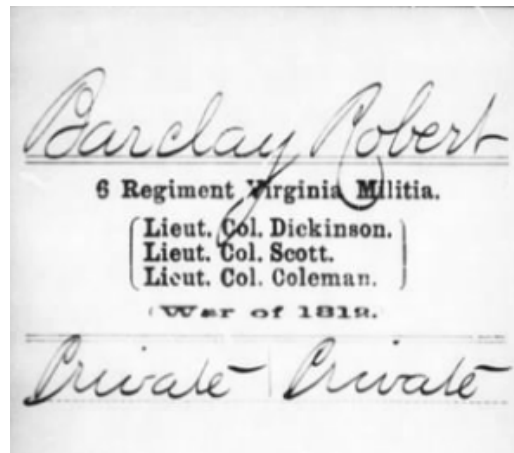 Barclay Robert
6 Regiment Virginia Militia.
Lieut. Col. Dickinson.
Lieut. Col. Scott.
Lieut. Col. Coleman.
(War of 1812.)
Private Private